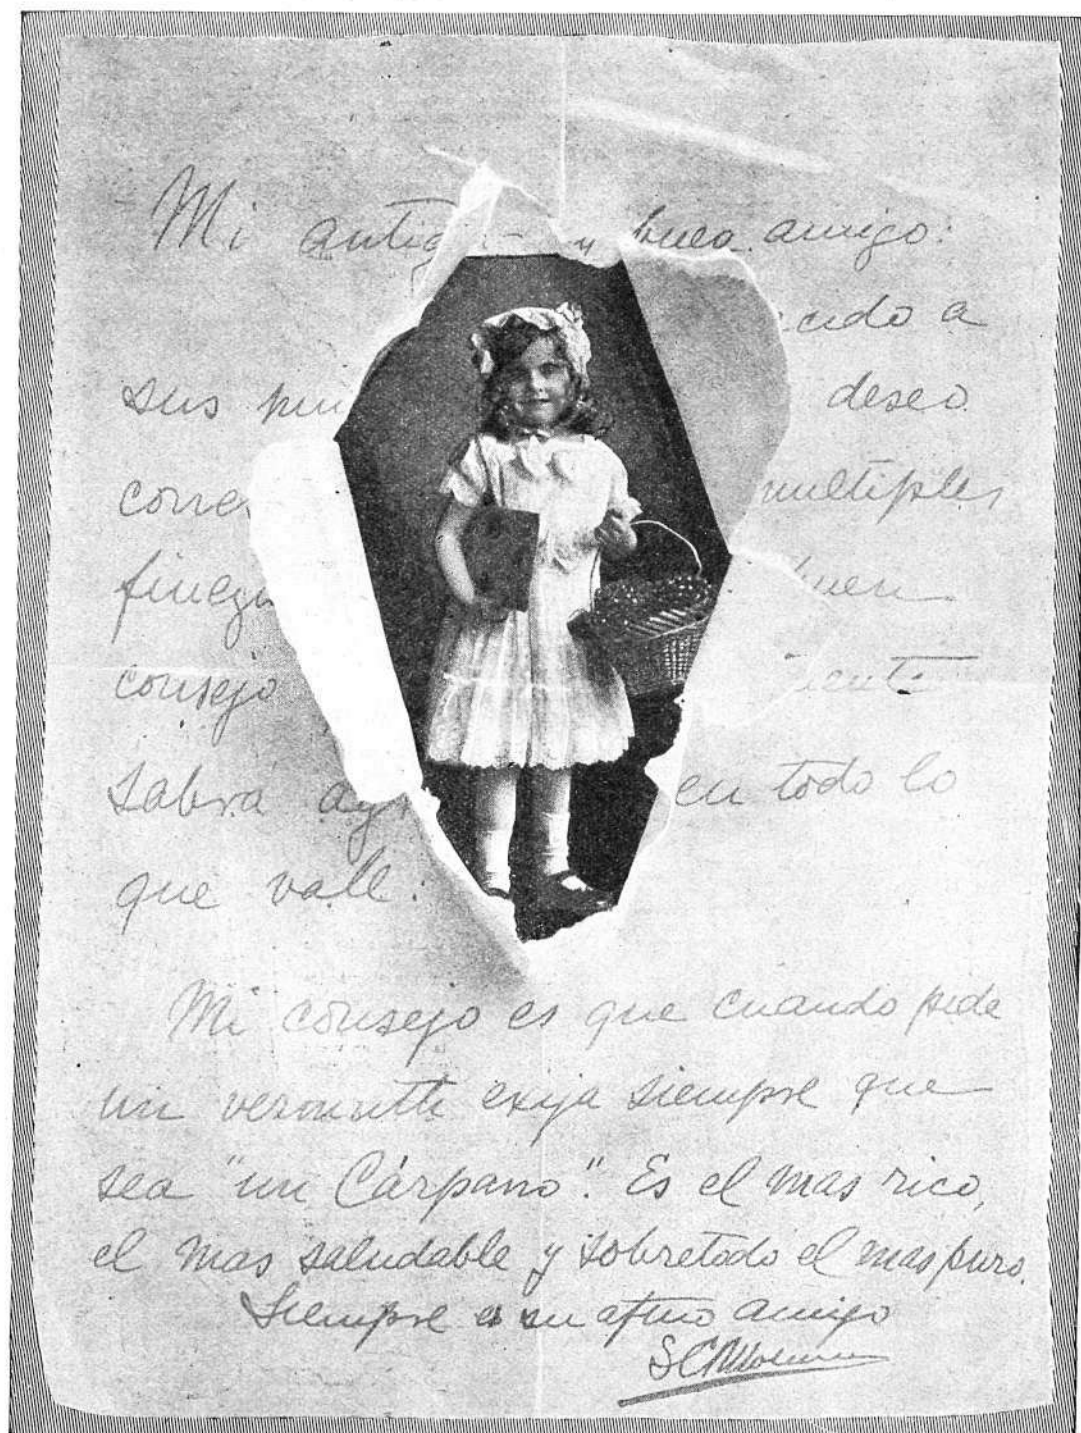 Mi antig y buen amigo:
cido a
sus deseo
corre multiples
finez buen
consejo
sabrá ag en todo lo
que vale.
Mi consejo es que cuando pida
un vermutte exija siempre que
sea "un Cárpano". Es el mas rico,
el mas saludable y sobretodo el mas puro.
Siempre su afmo amigo